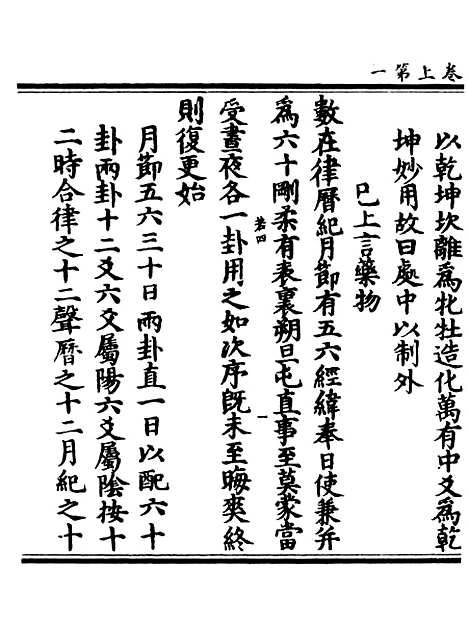 卷上第一
以乾坤坎離爲牝牡造化萬有中爻爲乾
坤妙用故曰處中以制外
已上言藥物
數在律曆紀月節有五六經緯奉日使兼并
爲六十剛柔有表裏朔旦屯直事至莫蒙當
若四
一
受晝夜各一卦用之如次序旣未至晦爽終
則復更始
月節五六三十日兩卦直一日以配六十
卦兩卦十二爻六爻屬陽六爻屬陰按十
二時合律之十二聲曆之十二月紀之十